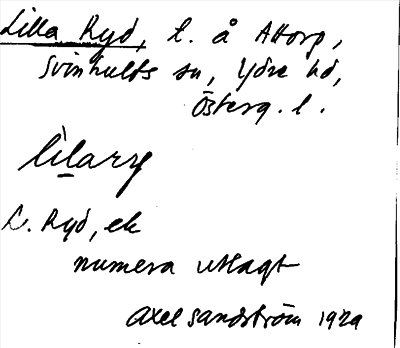 Lilla Ryd, l. å Attorp,
Svinhults sn, Ydre hd,
Österg. l.
lìlarry
L. Ryd, ek
numera utlagt
Axel Sandström 1929